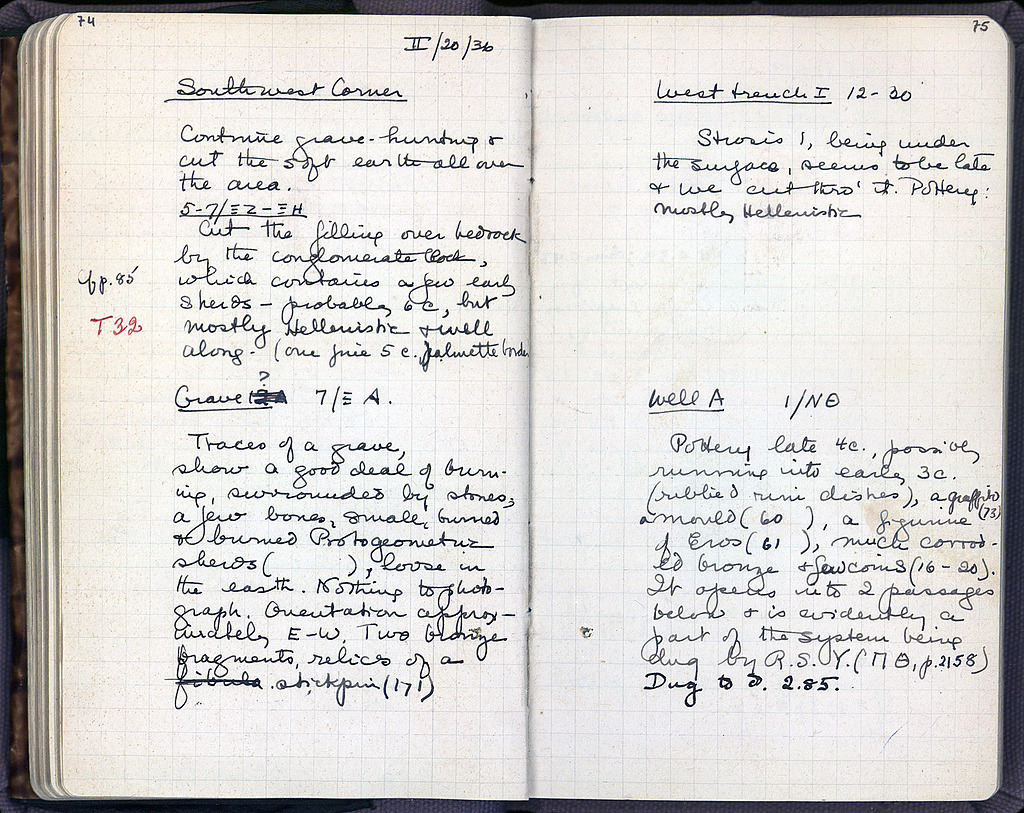 74
II/20/36
Southwest Corner
Continue grave-hunting &
cut the soft earth all over
the area.
5-7/ΞZ-ΞH
Cut the filling over bedrock
by the conglomerate block,
cf p. 85
which contains a few early
sherds – probably 6 c, but
T 32
mostly Hellenistic & well
along. (one fine 5 c. palmette border
?
Grave 7/Ξ A.
Traces of a grave,
show a good deal of burn-
ing, surrounded by stones;
a few bones, small, burned
& burned Protogeometric
sherds ( ), loose in
the earth. Nothing to photo-
graph. Orientation approx-
imately E-W. Two bronze
fragments, relics of a
fibula. stickpin (171)
75
West trench I 12-30
Strosis 1, being under
the surface, seems to be late
& we cut thro' it. Pottery:
mostly Hellenistic
Well A 1/NΘ
Pottery late 4c., possibly
running into early 3c.
(rubbed rim dishes), a graffito
(73)
a mould (60 ), a figurine
of Eros (61 ), much corrod-
ed bronze & few coins (16-20).
It opens into 2 passages
below & is evidently a
part of the system being
dug by R.S.Y. (ΠΘ, p. 2158)
Dug to d. 2.85.